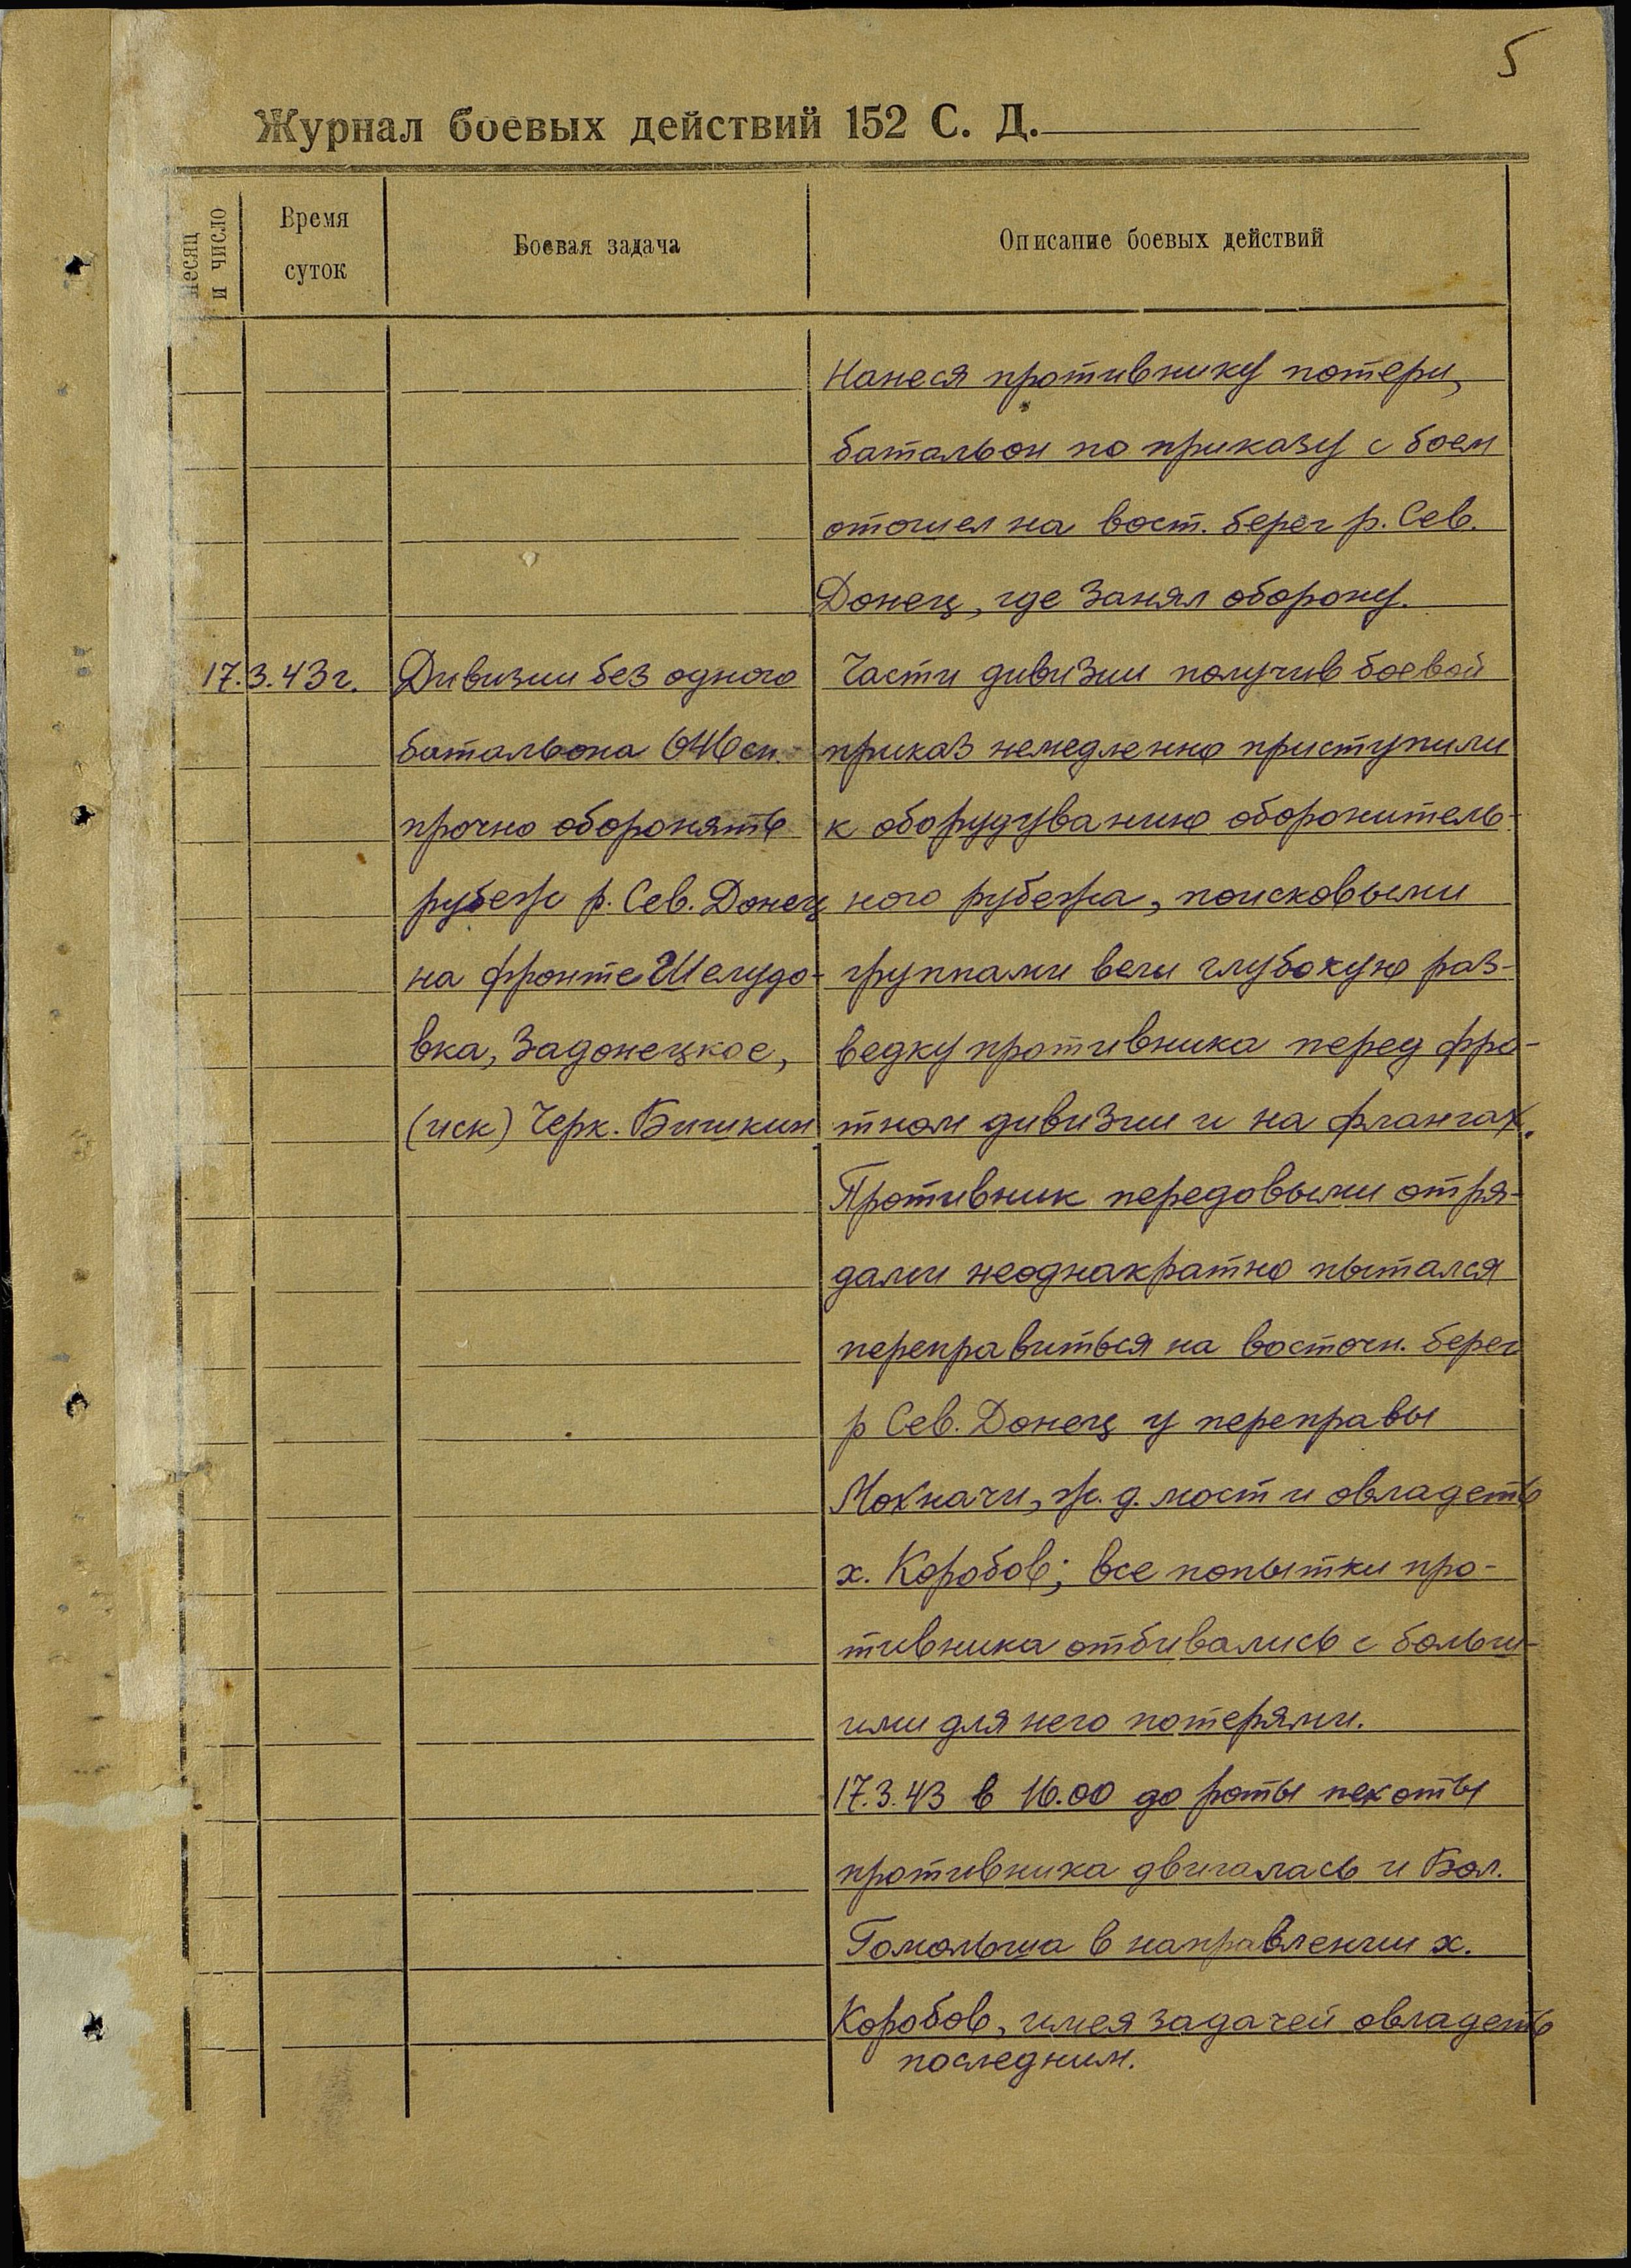 5
Журнал боевых действий 152 С. Д.
Месяц и число
Время суток
Боевая задача
Описание боевых действий
Нанеся противнику потери,
батальон по приказу с боем
отошел на вост. берег р. Сев.
Донец, где занял оборону.
17.3.43г.
Дивизии без одного
батальона 646 сп.
прочно оборонять
рубеж р. Сев. Донец
на фронте Шелудо-
вка, Задонецкое,
(иск) Черк. Бишкин
Части дивизии получив боевой
приказ немедленно приступили
к оборудуванию оборонитель-
ного рубежа, поисковыми
группами вели глубокую раз-
ведку противника перед фро-
тном дивизии и на флангах.
Противник передовыми отря-
дами неоднакратно пытался
переправиться на восточн. берег
р Сев. Донец у переправы
Мохначи, ж. д. мост и овладеть
х. Коробов; все попытки про-
тивника отбивались с больш-
ими для него потерями.
17.3.43 в 16.00 до роты пехоты
противника двигалась и Бол.
Гомольша в направлении х.
Коробов, имея задачей овладеть
последним.